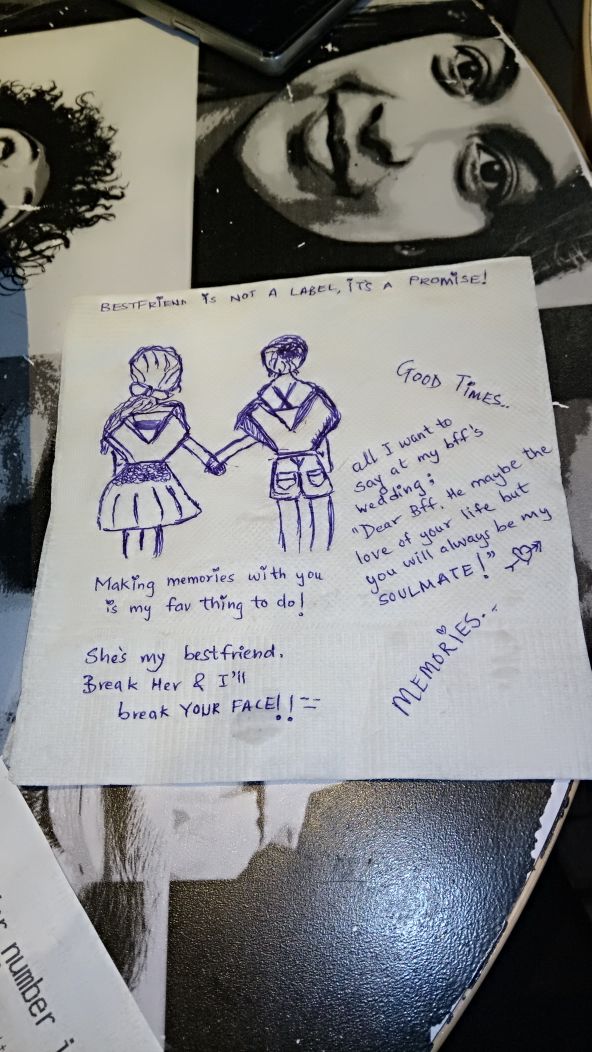 BESTFRIEND IS NOT A LABEL, IT'S A PROMISE!
GOOD TIMES..
all I want to
say at my bff's
wedding:
"Dear Bff. He maybe the
love of your life but
you will always be my
SOULMATE!"
MEMORIES..
Making memories with you
is my fav thing to do!
She's my bestfriend.
Break Her & I'll
break YOUR FACE!!
number